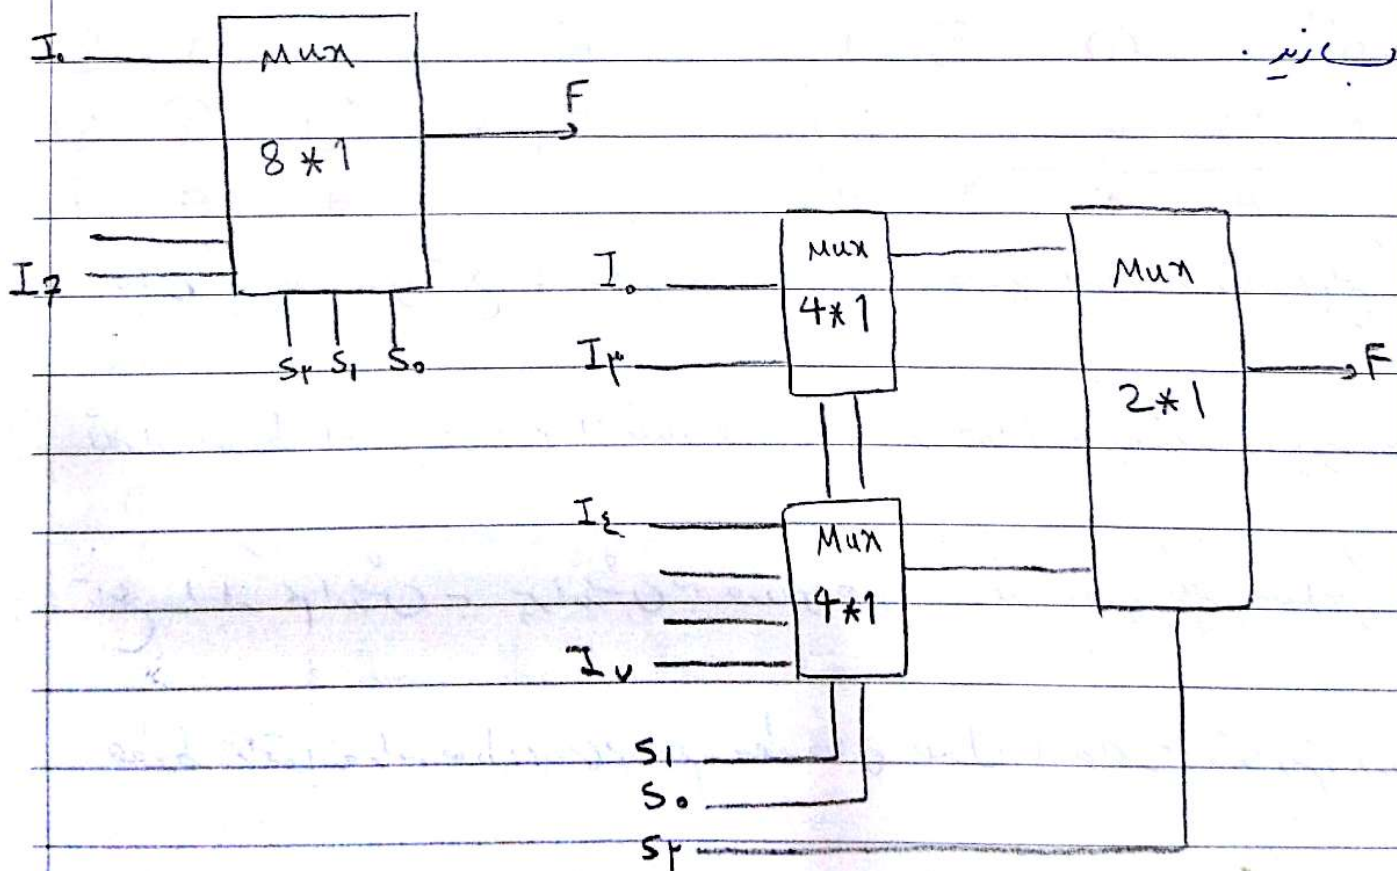 بسازید.
I.
Mux
8*1
F
I7
S۲ S۱ S۰
I۰
I۳
Mux
4*1
Mux
2*1
F
I٤
I۷
Mux
4*1
S۱
S۰
S۲